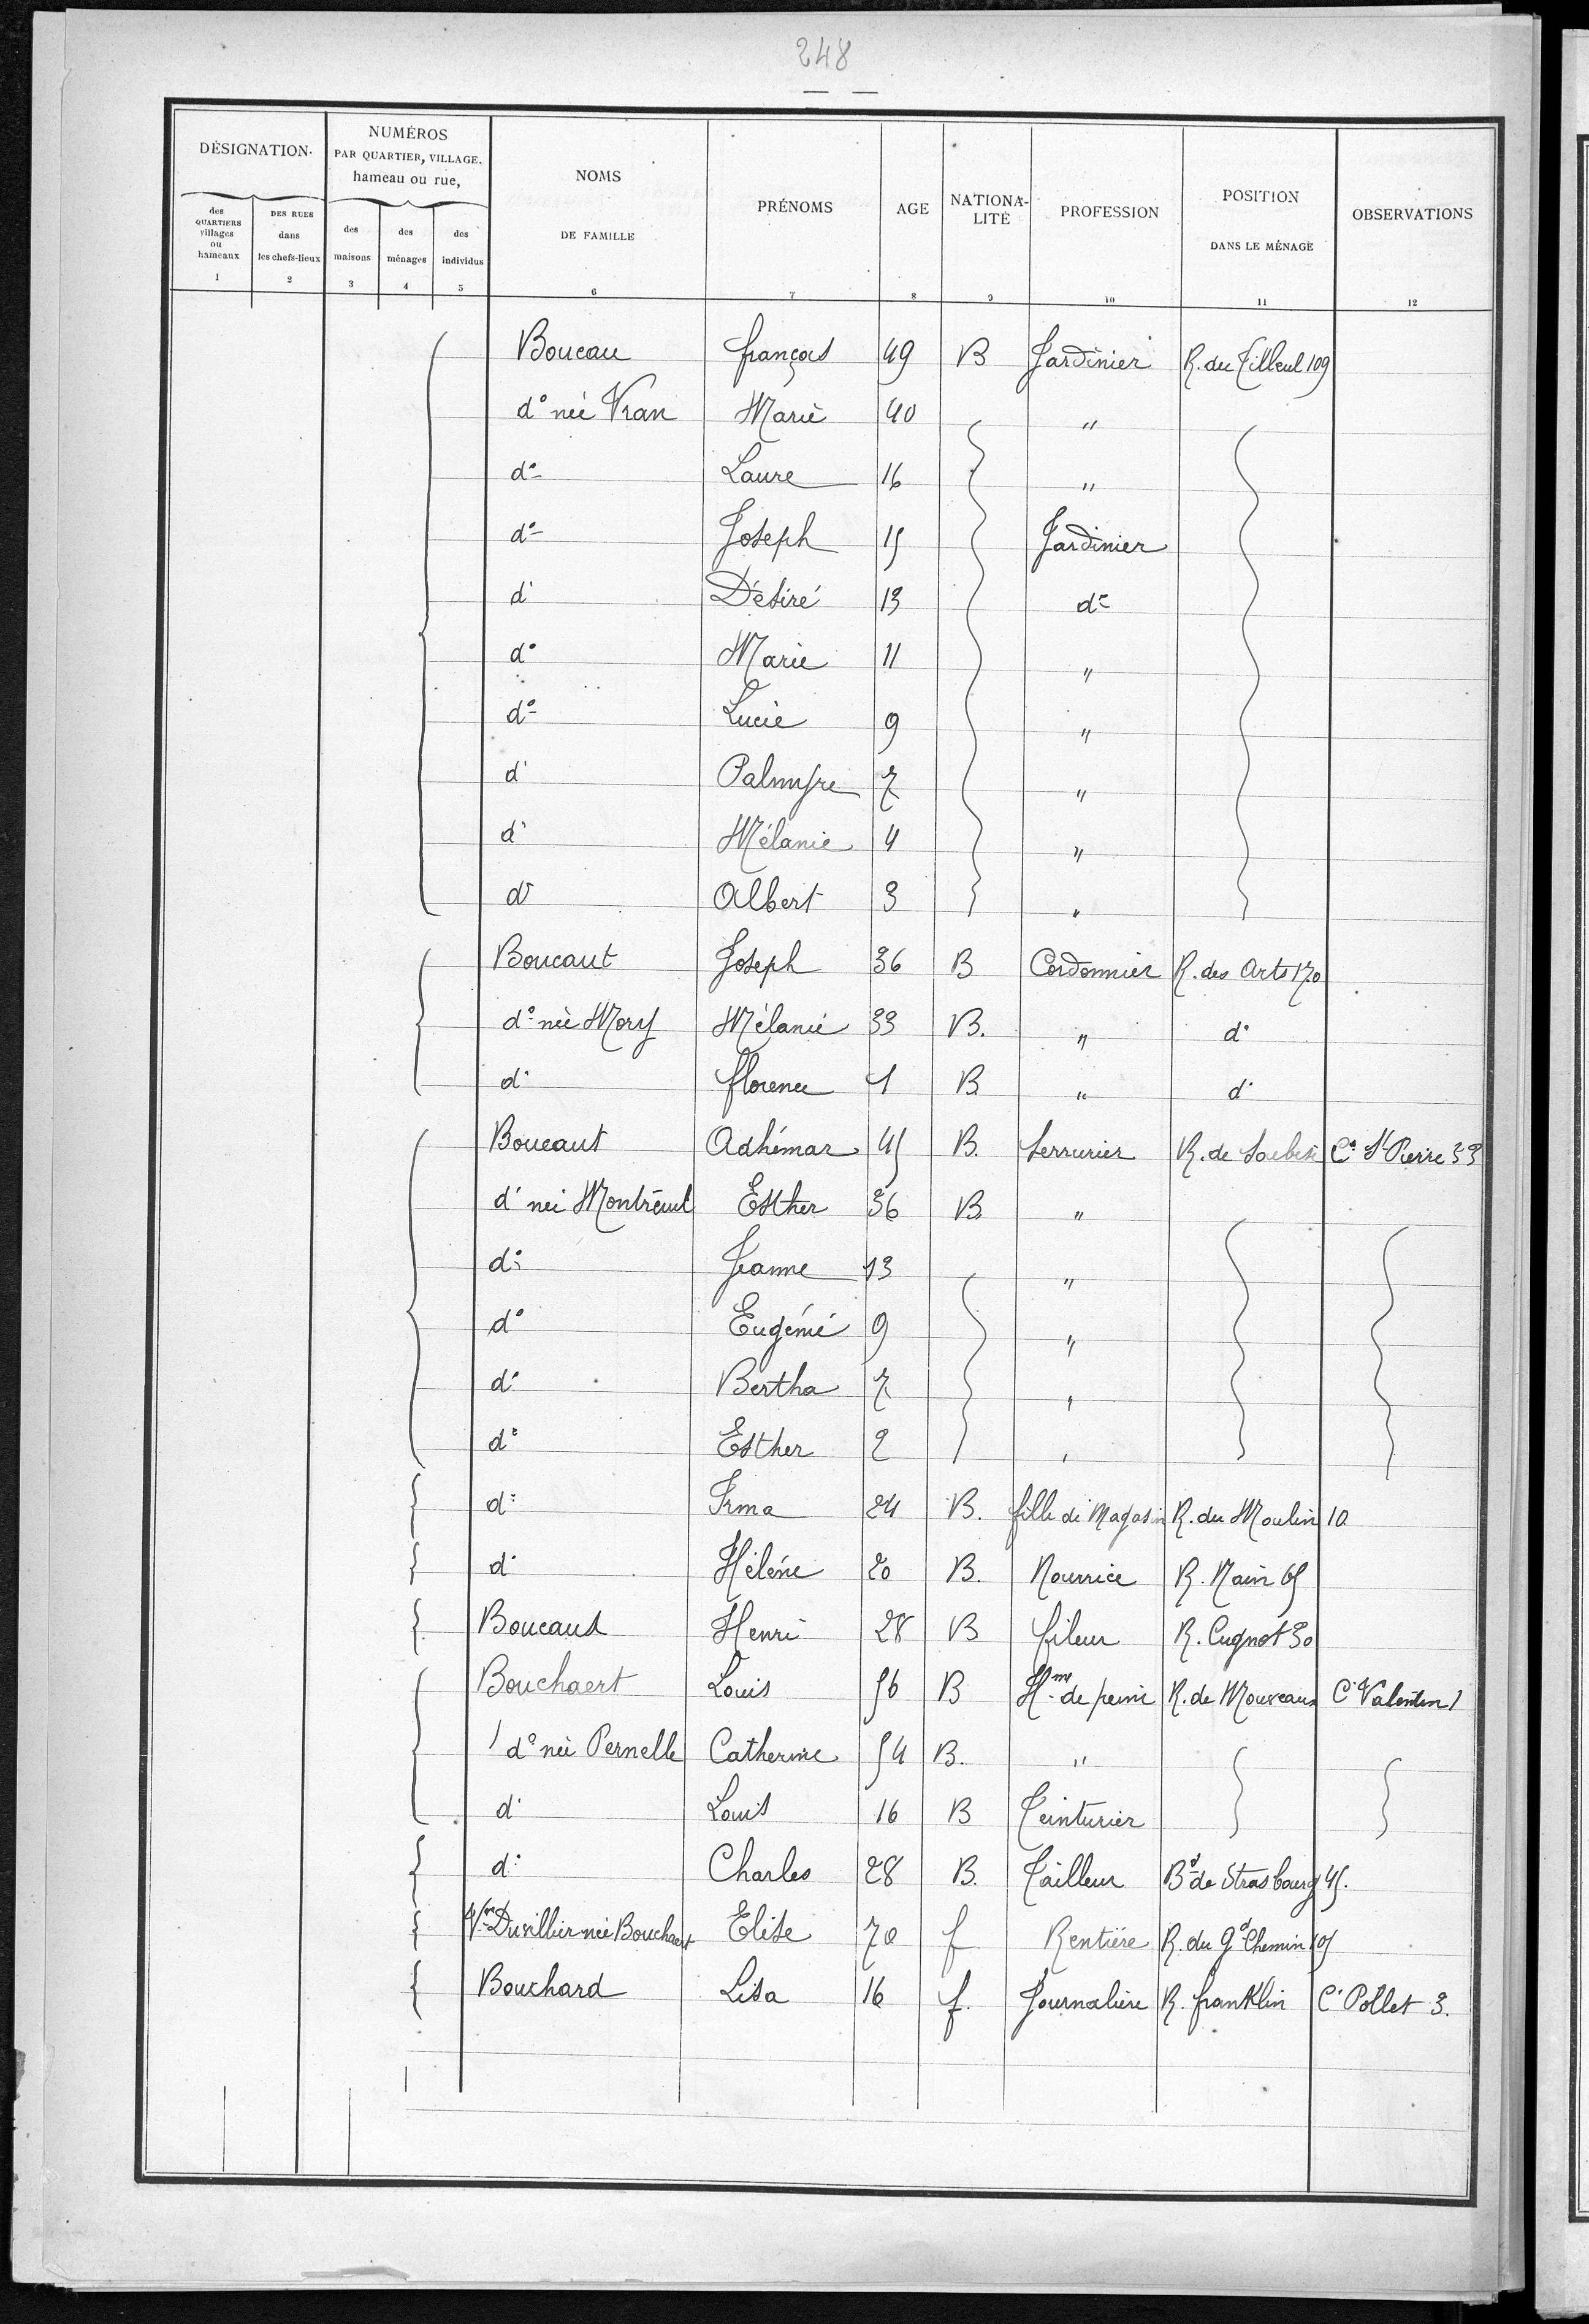 248
DÉSIGNATION. NUMÉROS PAR QUARTIER, VILLAGE. hameau ou rue, NOMS DE FAMILLE PRÉNOMS AGE NATIONA-LITÉ PROFESSION POSITION DANS LE MÉNAGE OBSERVATIONS
des QUARTIERS villages ou hameaux DES RUES dans les chefs-lieux des maisons des ménages des individus
1 2 3 4 5 6 7 8 9 10 11 12
Boucau françois 49 B Jardinier R. du Tilleul 109
d° née Vran Marie 40 "
d° Laure 16 "
d° Joseph 15 Jardinier
d° Désiré 13 d°
d° Marie 11 "
d° Lucie 9 "
d° Palmyre 7 "
d° Mélanie 4 "
d° Albert 3 "
Boucaut Joseph 36 B Cordonnier R. des Arts 170
d° née Mory Mélanie 33 B. " d°
d° florence 1 B " d°
Boucaut Adhémar 45 B. Serrurier R. de Soubise Cr St Pierre 33
d° née Montreuil Esther 36 B. "
d° Jeanne 13 "
d° Eugénie 9 "
d° Bertha 7 "
d° Esther 2 "
d° Irma 24 B. fille de Magasin R. du Moulin 10
d° Hélène 20 B. Nourrice R. Nain 65
Boucaut Henri 28 B fileur R. Cugnot 30
Bouchaert Louis 56 B Hme de peine R. de Mouveaux Cr Valentin 1
d° née Pernelle Catherine 54 B. "
d° Louis 16 B Teinturier
d° Charles 28 B. Tailleur Bd de Strasbourg 45.
Vve Duvillier née Bouchaert Elise 70 f Rentière R. du Gd Chemin 105
Bouchard Lisa 16 f. Journalière R. franklin Cr Pollet 3.